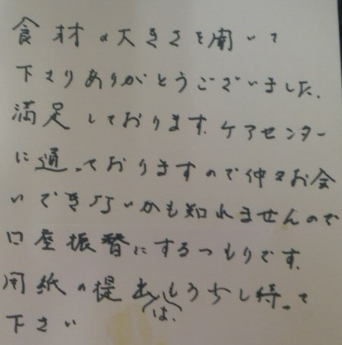 食材の大きさを聞いて
下さりありがとうございました.
満足しております.ケアセンター
に通っておりますので仲々お会
いできないかも知れませんので
口座振替にするつもりです.
用紙の提出はもう少し待って
下さい